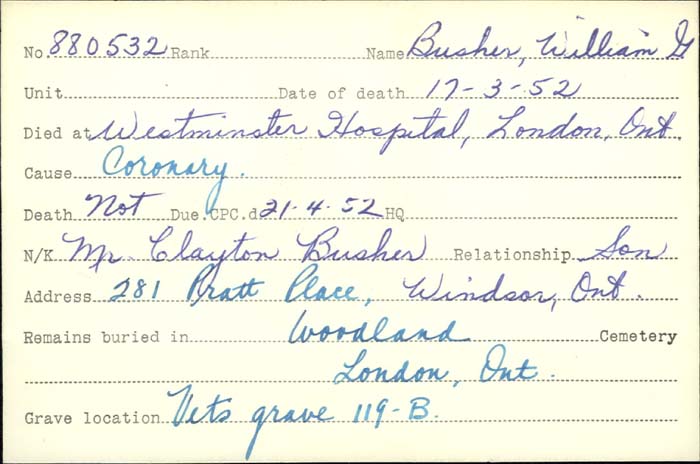 No. 880532 Rank Name Busher, William G
Unit Date of death 17-3-52
Died at Westminster Hospital, London, Ont.
Cause Coronary.
Death Not Due. CPC.d 21-4-52 HQ
N/K Mr. Clayton Busher Relationship Son
Address 281 Pratt Place, Windsor, Ont.
Remains buried in Woodland Cemetery
London, Ont.
Grave location Vets grave 119-B.